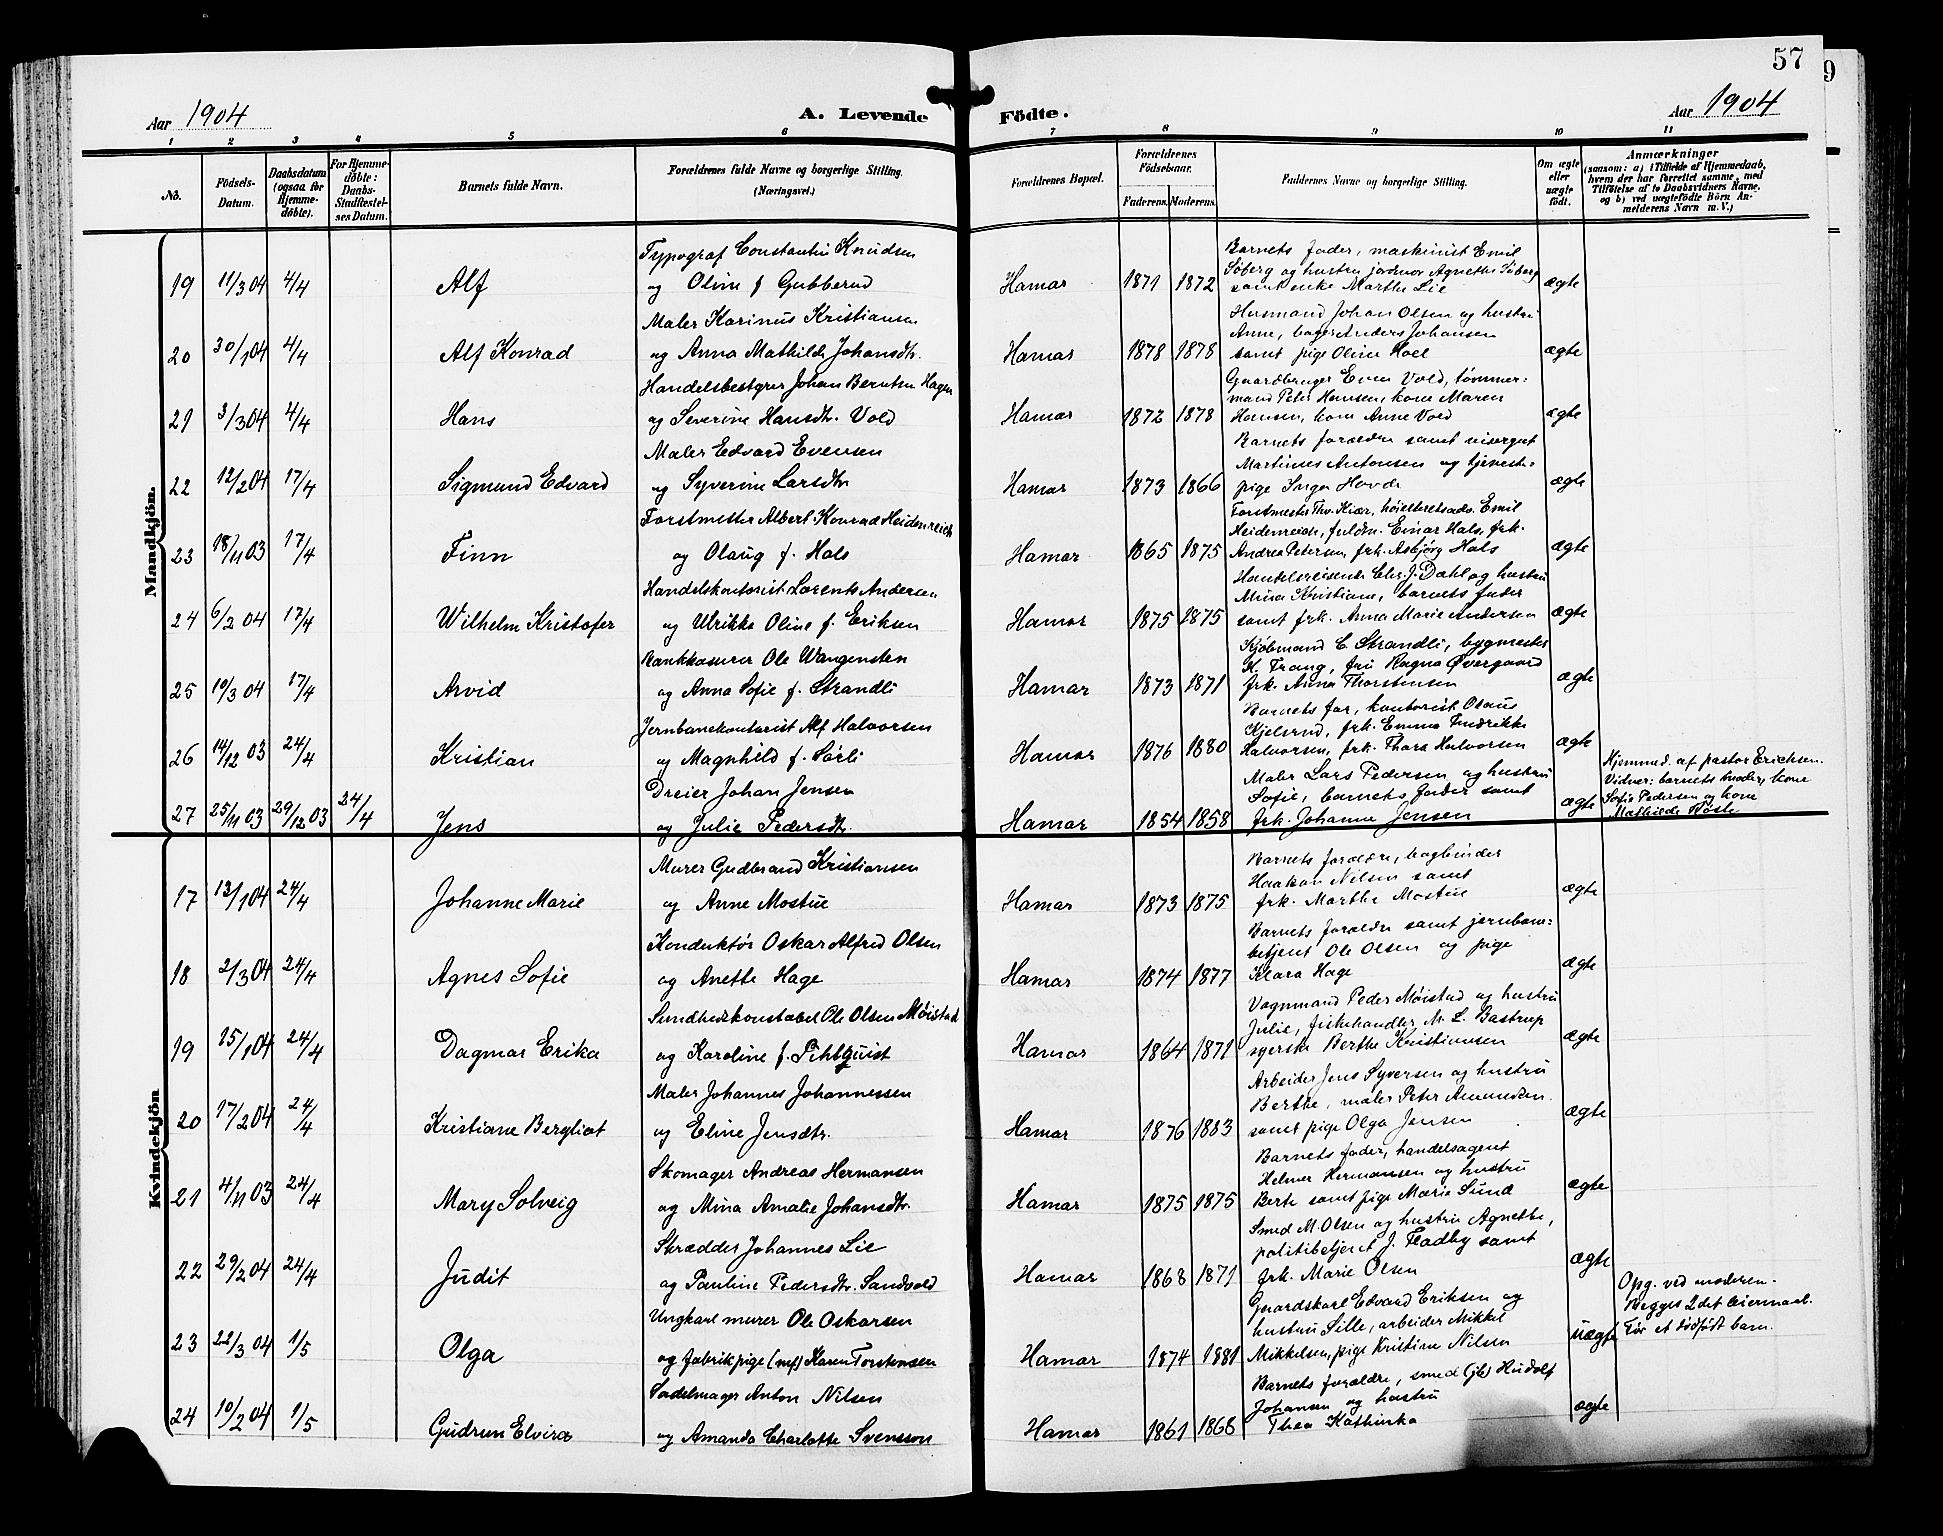 57
9
Aar 1904
A. Levende Födte.
Aar 1904
1 2 3 4 5 6 7 8 9 10 11
No.
Födsels-Datum.
Daabsdatum (ogsaa for Hjemmedöbte).
For Hjemmedöbte: Daabs-Stadfæstelses Datum.
Barnets fulde Navn.
Forældrenes fulde Navne og borgerlige Stilling.
(Næringsvei.)
Forældrenes Bopæl.
Forældrenes Födselsaar.
Faderens. Moderens.
Faddernes Navne og borgerlige Stilling.
Om ægte eller uægte födt.
Anmærkninger
(saasom: a) i Tilfælde af Hjemmedaab, hvem der har forrettet samme, med Tilföielse af to Daabsvidners Navne, og b) ved uægtefödte Börn Anmelderens Navn m. V.)
Mandkjön.
19 11/3 04 4/4 Alf
Typograf Constantin Knudsen
og Oline f. Gubberud
Hamar 1871 1872
Barnets fader, maskinist Emil
Söberg og hustru jordmor Agnethe Söberg
samt enke Marthe Lie
ægte
20 30/1 04 4/4 Alf Konrad
Maler Karinus Kristiansen
og Anna Mathilde Johansdtr.
Hamar 1878 1878
Husmand Johan Olsen og hustru
Anne, bager Anders Johansen
samt pige Oline Hoel
ægte
21 3/3 04 4/4 Hans
Handelsbestyrer Johan Berntsen Hagen
og Severine Hansdtr. Vold
Hamar 1872 1878
Gaardbruger Even Vold, tømmer:
mand Peter Hansen, kone Maren
Hansen, kone Anne Vold
ægte
22 12/2 04 17/4 Sigmund Edvard
Maler Edvard Evensen
og Syverine Larsdtr
Hamar 1873 1866
Barnets forældre samt visergut
Martinus Antonsen og tjeneste:
pige Inga Hovde
ægte
23 18/11 03 17/4 Finn
Forstmester Albert Konrad Heidenreich
og Olaug f. Hals
Hamar 1865 1875
Forstmester Th. Kiær, høiesteretsadv. Emil
Heidenreich, fuldm. Einar Hals, frk.
Andrea Petersen, frk. Asbjørg Hals
ægte
24 6/2 04 17/4 Wilhelm Kristofer
Handelskontorist Lorents Andersen
og Ulrikke Oline f. Eriksen
Hamar 1875 1875
Handelsreisende Chr. J. Dæhl og hustru
Mina Kristiane, barnets fader
samt frk. Anna Marie Andersen
ægte
25 19/3 04 17/4 Arvid
Bankkasserer Ole Wangensten
og Anna Sofie f. Strandli
Hamar 1873 1871
Kjøbmand C Strandli, bygmester
K. Trang, fru Ragna Øvergaard
frk. Anna Thorstensen
ægte
26 14/12 03 24/4 Kristian
Jernbanekontorist Alf Halvorsen
og Magnhild f. Sørli
Hamar 1876 1880
Barnets far, kontorist Olaus
Kjelsrud, frk. Emma Fredrikke
Halvorsen, frk. Thora Halvorsen
ægte
27 25/11 03 29/12 03 24/4 Jens
Dreier Johan Jensen
og Julie Pedersdtr.
Hamar 1854 1858
Maler Lars Pedersen og hustru
Sofie, barnets fader samt
frk. Johanne Jensen
ægte
Hjemmed. af pastor Erichsen.
Vidner: barnets moder, kone
Sofie Pedersen og kone
Mathilde Røste
Kvindekjön
17 13/1 04 24/4 Johanne Marie
Murer Gudbrand Kristiansen
og Anne Mostue
Hamar 1873 1875
Barnets forældre, bogbinder
Haakon Nilsen samt
frk. Marthe Mostue
ægte
18 2/3 04 24/4 Agnes Sofie
Konduktør Oskar Alfred Olsen
og Anette Hage
Hamar 1874 1877
Barnets forældre samt jernbane:
betjent Ole Olsen og pige
Klara Hage
ægte
19 15/1 04 24/4 Dagmar Erika
Sundhedskonstabel Ole Olsen Møistad
og Karoline f. Pihlquist
Hamar 1864 1871
Vognmand Peder Møistad og hustru
Julie, fiskehandler M. L. Bastrup
syerske Berthe Kristiansen
ægte
20 17/2 04 24/4 Kristiane Bergliot
Maler Johannes Johannessen
og Eline Jensdtr.
Hamar 1876 1883
Arbeider Jens Syversen og hustru
Berthe, maler Peter Amundsen
samt pige Olga Jensen
ægte
21 4/11 03 24/4 Mary Solveig
Skomager Andreas Hermansen
og Mina Amalie Johansdtr.
Hamar 1875 1875
Barnets fader, handelsagent
Helmer Hermansen og hustru
Berte samt pige Marie Sund
ægte
22 29/2 04 24/4 Judit
Skrædder Johannes Lie
og Pauline Pedersdtr. Sandvold
Hamar 1868 1871
Smed M. Olsen og hustru Agnethe,
politibetjent J. Fladby samt
frk. Marie Olsen
ægte
23 22/3 04 1/5 Olga
Ungkarl murer Ole Oskarsen
og fabrikpige (mf) Karen Torstensen
Hamar 1874 1881
Gaardskarl Edvard Eriksen og
hustru Sille, arbeider Mikkel
Mikkelsen, pige Kristine Nilsen
uægte
Opg. ved moderen.
Begges 2det leiermaal.
Før et dødfødt barn.
24 10/2 04 1/5 Gudrun Elvira
Sadelmager Anton Nilsen
og Amanda Charlotte Svensson
Hamar 1861 1868
Barnets forældre, smed (jb) Hudolf
Johansen og hustru
Thea Kathinka
ægte